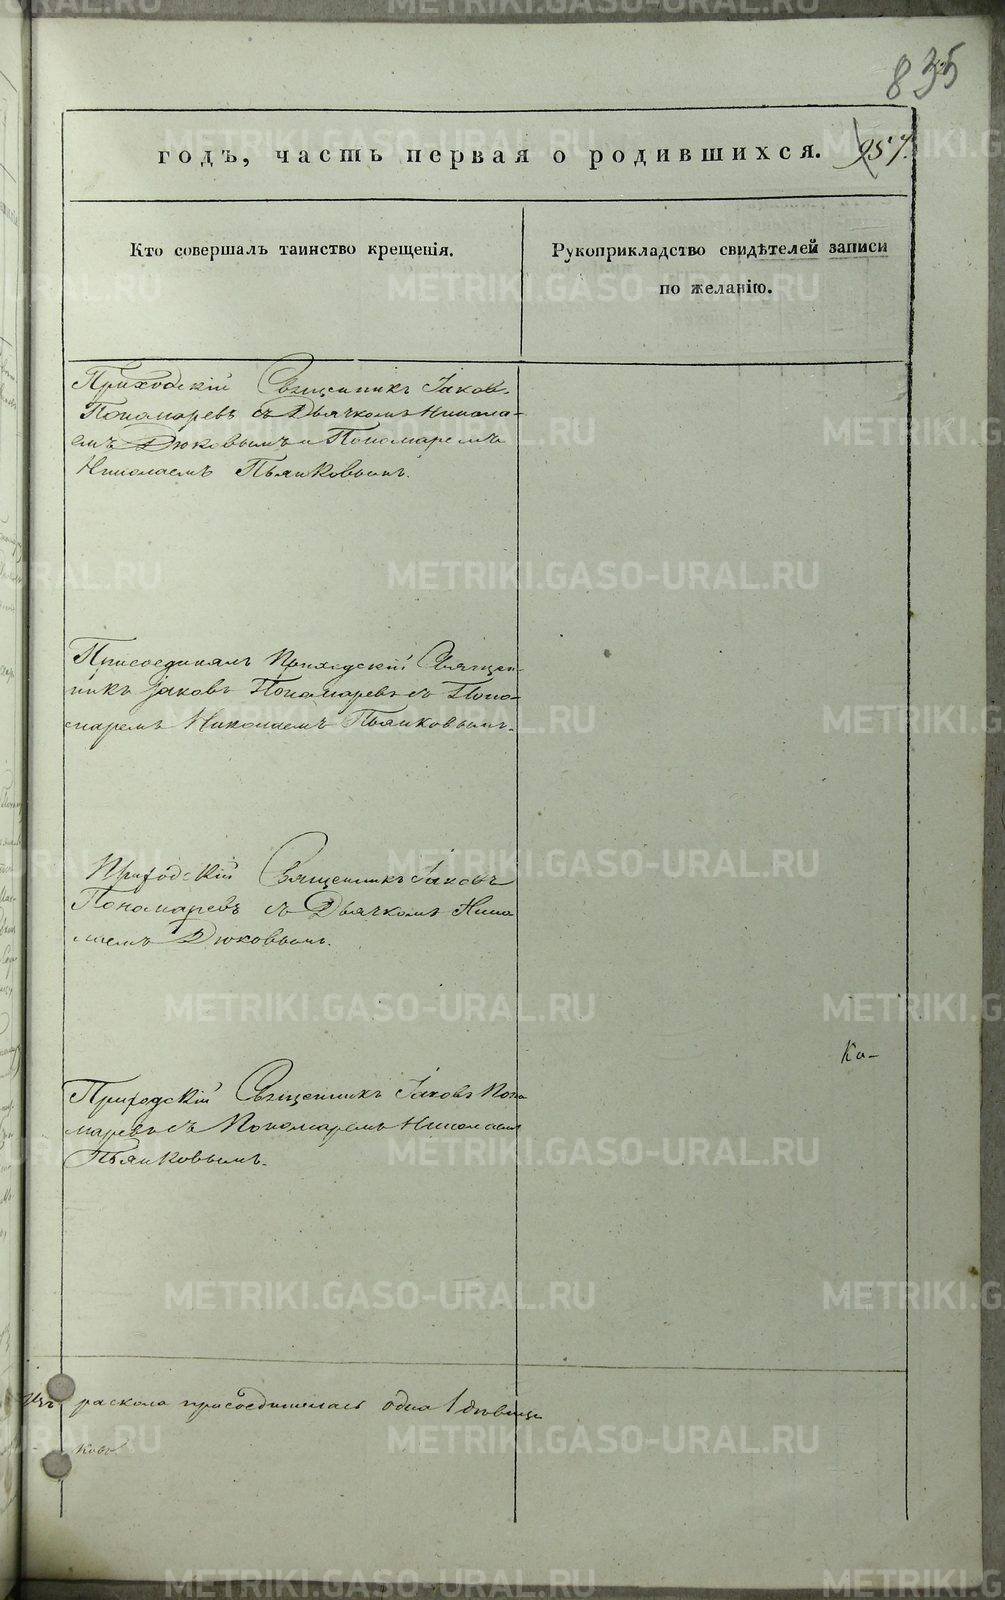 835
годъ, часть первая о родившихся. 257.
Кто совершалъ таинство крещенія.
Рукоприкладство свидѣтелей записи
по желанію.
Приходскій Священникъ Іаковъ
Пономаревъ съ Дьячкомъ Никола-
емъ Дюковымъ и Пономаремъ
Николаемъ Пьянковымъ.
Присоединялъ Приходскій Священ-
никъ Іаковъ Пономаревъ съ Поно-
маремъ Николаемъ Пьянковымъ.
Приходскій Священникъ Іаковъ
Пономаревъ съ Дьячкомъ Нико
лаемъ Дюковымъ.
Ка-
Приходскій Священникъ Іаковъ Поно
маревъ съ Пономаремъ Николаемъ
Пьянковымъ.
Изъ раскола присоединилась одна 1 дѣвица
ковъ.
METRIKI.GASO-URAL.RU